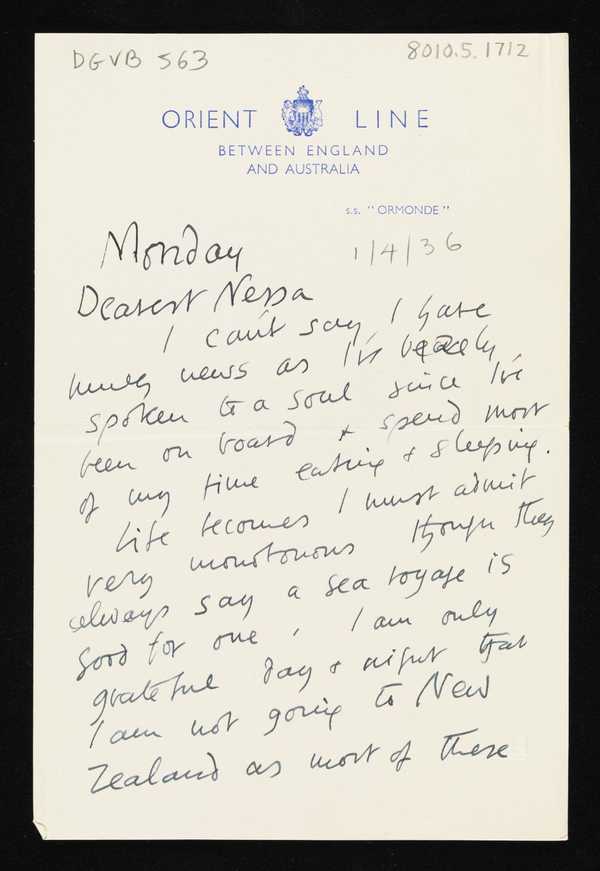 DGVB 563
8010.5.1712
ORIENT LINE
BETWEEN ENGLAND
AND AUSTRALIA
s.s. "ORMONDE"
Monday
1/4/36
Dearest Nessa
I can't say I have
much news as I've
spoken to a soul since I've
been on board & spend most
of my time eating & sleeping.
Life becomes I must admit
very monotonous though they
always say a sea voyage is
good for one, I am only
grateful day & night that
I am not going to New
Zealand as most of these